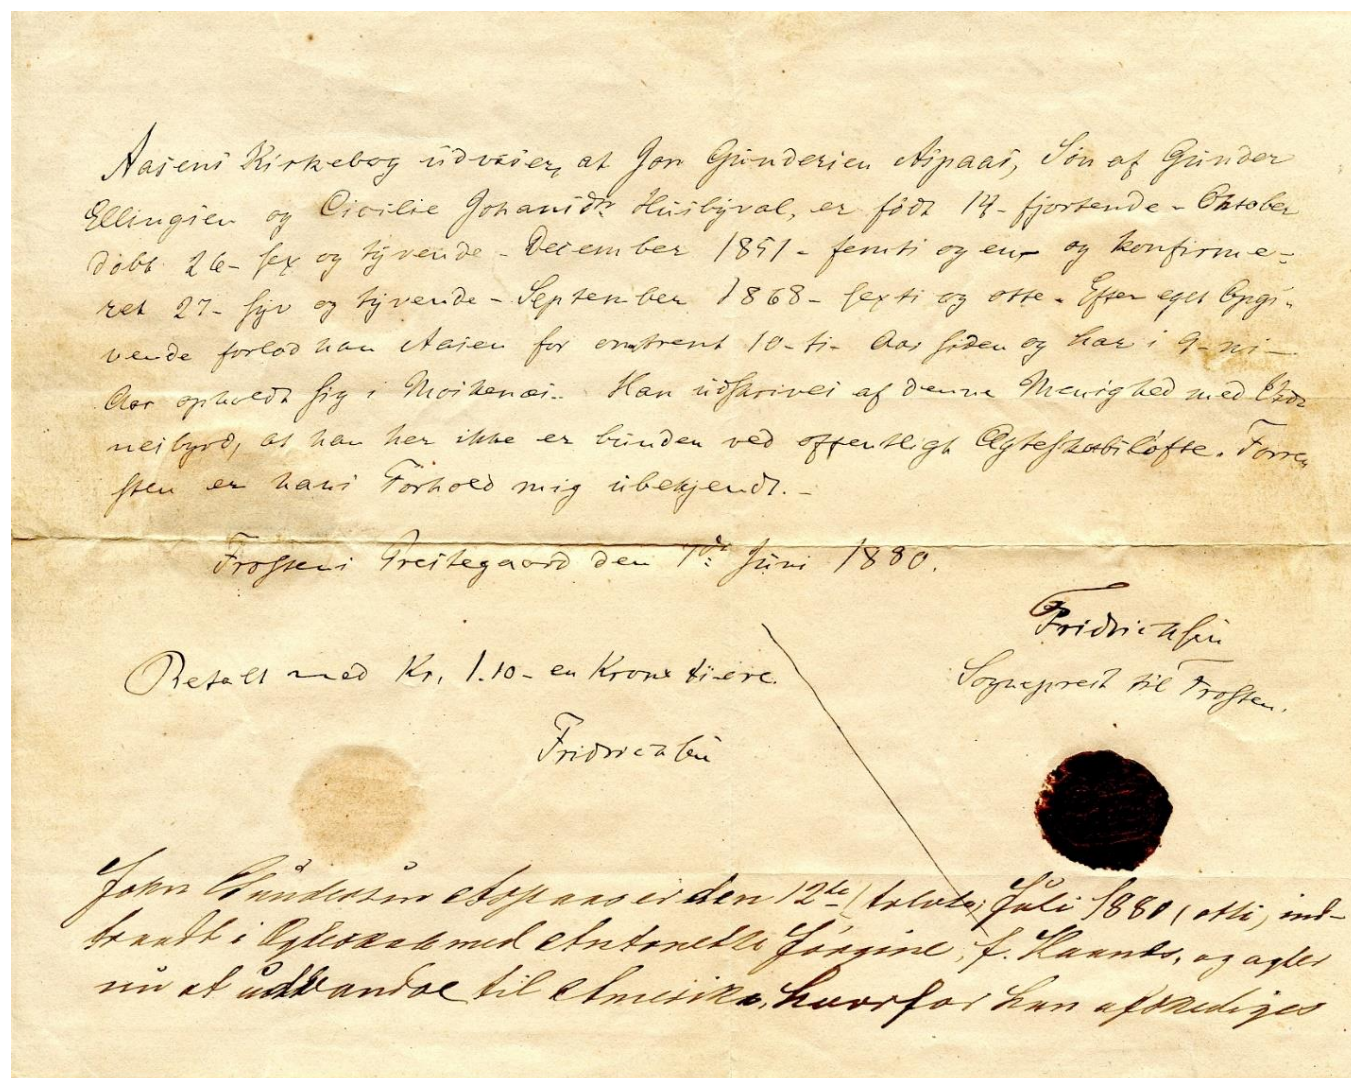 Aasens Kirkebog udviser, at Jon Gundersen Aspaas, Søn af Gunder
Ellingsen og Cicilie Johansdr. Husbyval, er født 14 - fjortende - Oktober
døbt 26 - sex og tyvende - December 1851 - femti og en - og konfirme-
ret 27 - syv og tyvende - September 1868 - sexti og otte - Efter eget Opgi-
vende forlod han Aasen for omtrent 10 - ti - Aar siden og har i 9 - ni -
Aar opholdt sig i Moskenæs. Han udskrives af denne Menighed med Vid-
nesbyrd, at han her ikke er bunden ved offentligt Ægteskabsløfte. Forre-
sten er hans Forhold mig ubekjendt. -
Frostens Prestegaard den 7de Juni 1880.
Fridrichsen
Sogneprest til Frosten.
Betalt med Kr. 1.10 - en Krone ti øre.
Fridrichsen
John Gundersen Aspaas er den 12te (tolvte) Juli 1880 (otti) ind-
traadt i Ægteskab med Antonette Jørgine, f. og agter
nu at udvandre til Amerika, hvorfor han afskediges